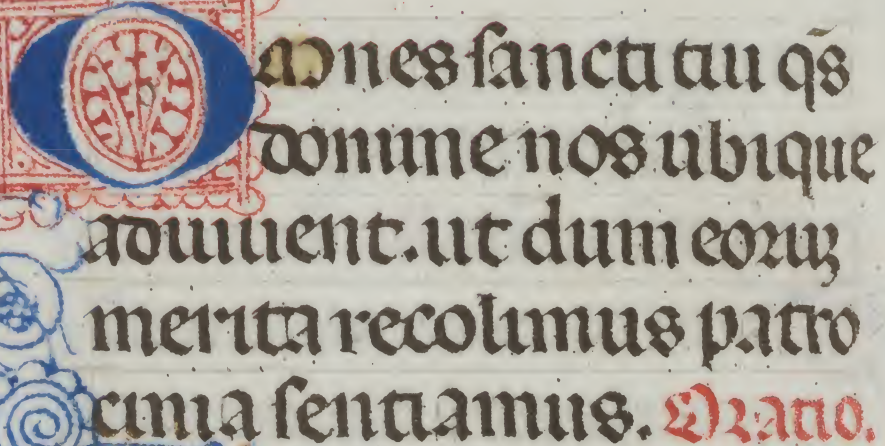 Omnes sancti tui qs̄
domine nos ubique
adiuuent. ut dum eoruꝫ
merita recolimus patro
cinia sentiamus. Oratio.